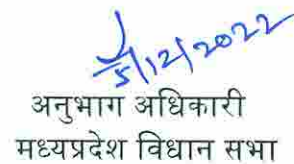 5/12/2022
अनुभाग अधिकारी
मध्यप्रदेश विधान सभा